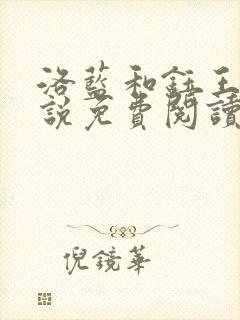 洛藍和鈺王
說免費閱讀
倪鏡華